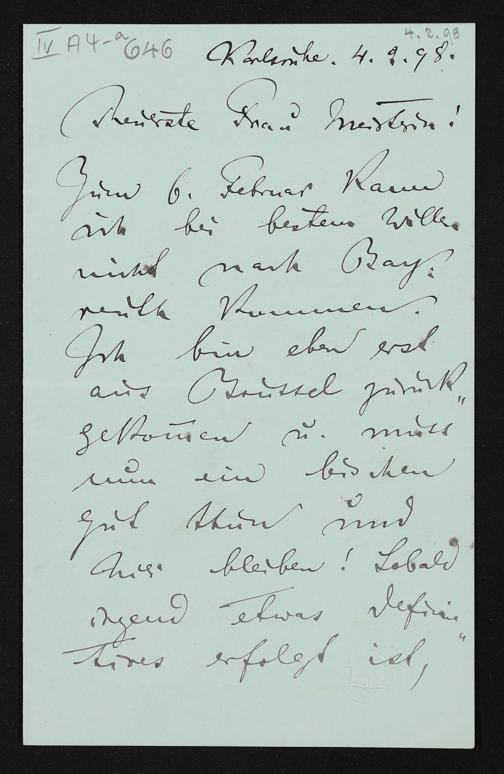 IV A4-a 646
4.2.98
Karlsruhe. 4. 2. 98.
Theuerste Frau Meisterin!
Zum 6. Februar kann
ich bei bestem Willen
nicht nach Bay-
reuth kommen.
Ich bin eben erst
aus Brüssel zurück-
gekom̄en u. muss
nun ein bischen
gut thun und
hier bleiben! Sobald
irgend etwas defini-
tives erfolgt ist,